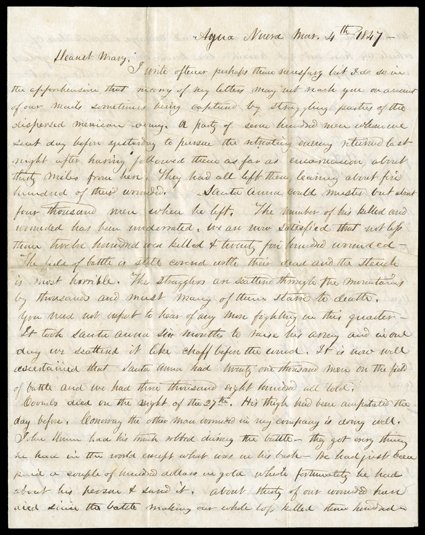 Agua Nueva Mar. 4th 1847 –
Dearest Mary;
I write oftener perhaps than necessary but I do so in
the apprehension that many of my letters may not reach you on account
of our mails sometimes being captured by straggling parties of the
dispersed mexican army. A party of some hundred men whom we
sent day before yesterday to pursue the retreating enemy returned last
night after having followed them as far as encarnacion about
thirty miles from here They had all left there leaving about five
hundred of their wounded. Santa Anna could muster but about
four thousand men when he left. The number of his killed and
wounded has been underrated. We are now satisfied that not less
than twelve hundred was killed & twenty five hundred wounded –
The field of battle is still covered with their dead and the stench
is most horrible. The stragglers are scattered through the mountains
by thousands and must many of them starve to death.
You need not expect to hear of any more fighting in this quarter –
It took santa anna six months to raise his army and in one
day we scattered it like chaff before the wind. It is now well
ascertained that Santa Anna had twenty one thousand men on the field
of battle and we had three thousand eight hundred all told.
died on the night of the 27th. His thigh had been amputated the
day before. Conway the other man wounded in my company is doing well.
John had his trunk robbed during the battle – they got every thing
he had in the world except what was on his back – He had just been
paid a couple of hundred dollars in gold which fortunately he had
about his person & saved it. about thirty of our wounded have
died since the battle making our whole loss killed three hundred –